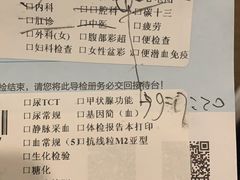 □内科 □口腔科 □碳十三
□肛诊 □中医 □疲劳
□外科(女) □腹部彩超 □便检查
□妇科检查 □女性盆彩 □便潜血免疫
检结束，请您将此导检册务必交回接待台！
□尿TCT □甲状腺功能
□尿常规 □基因筒(血)
□静脉采血 □体检报告本打印
□血常规(5 □抗线粒M2亚型
□生化检验
□糖化